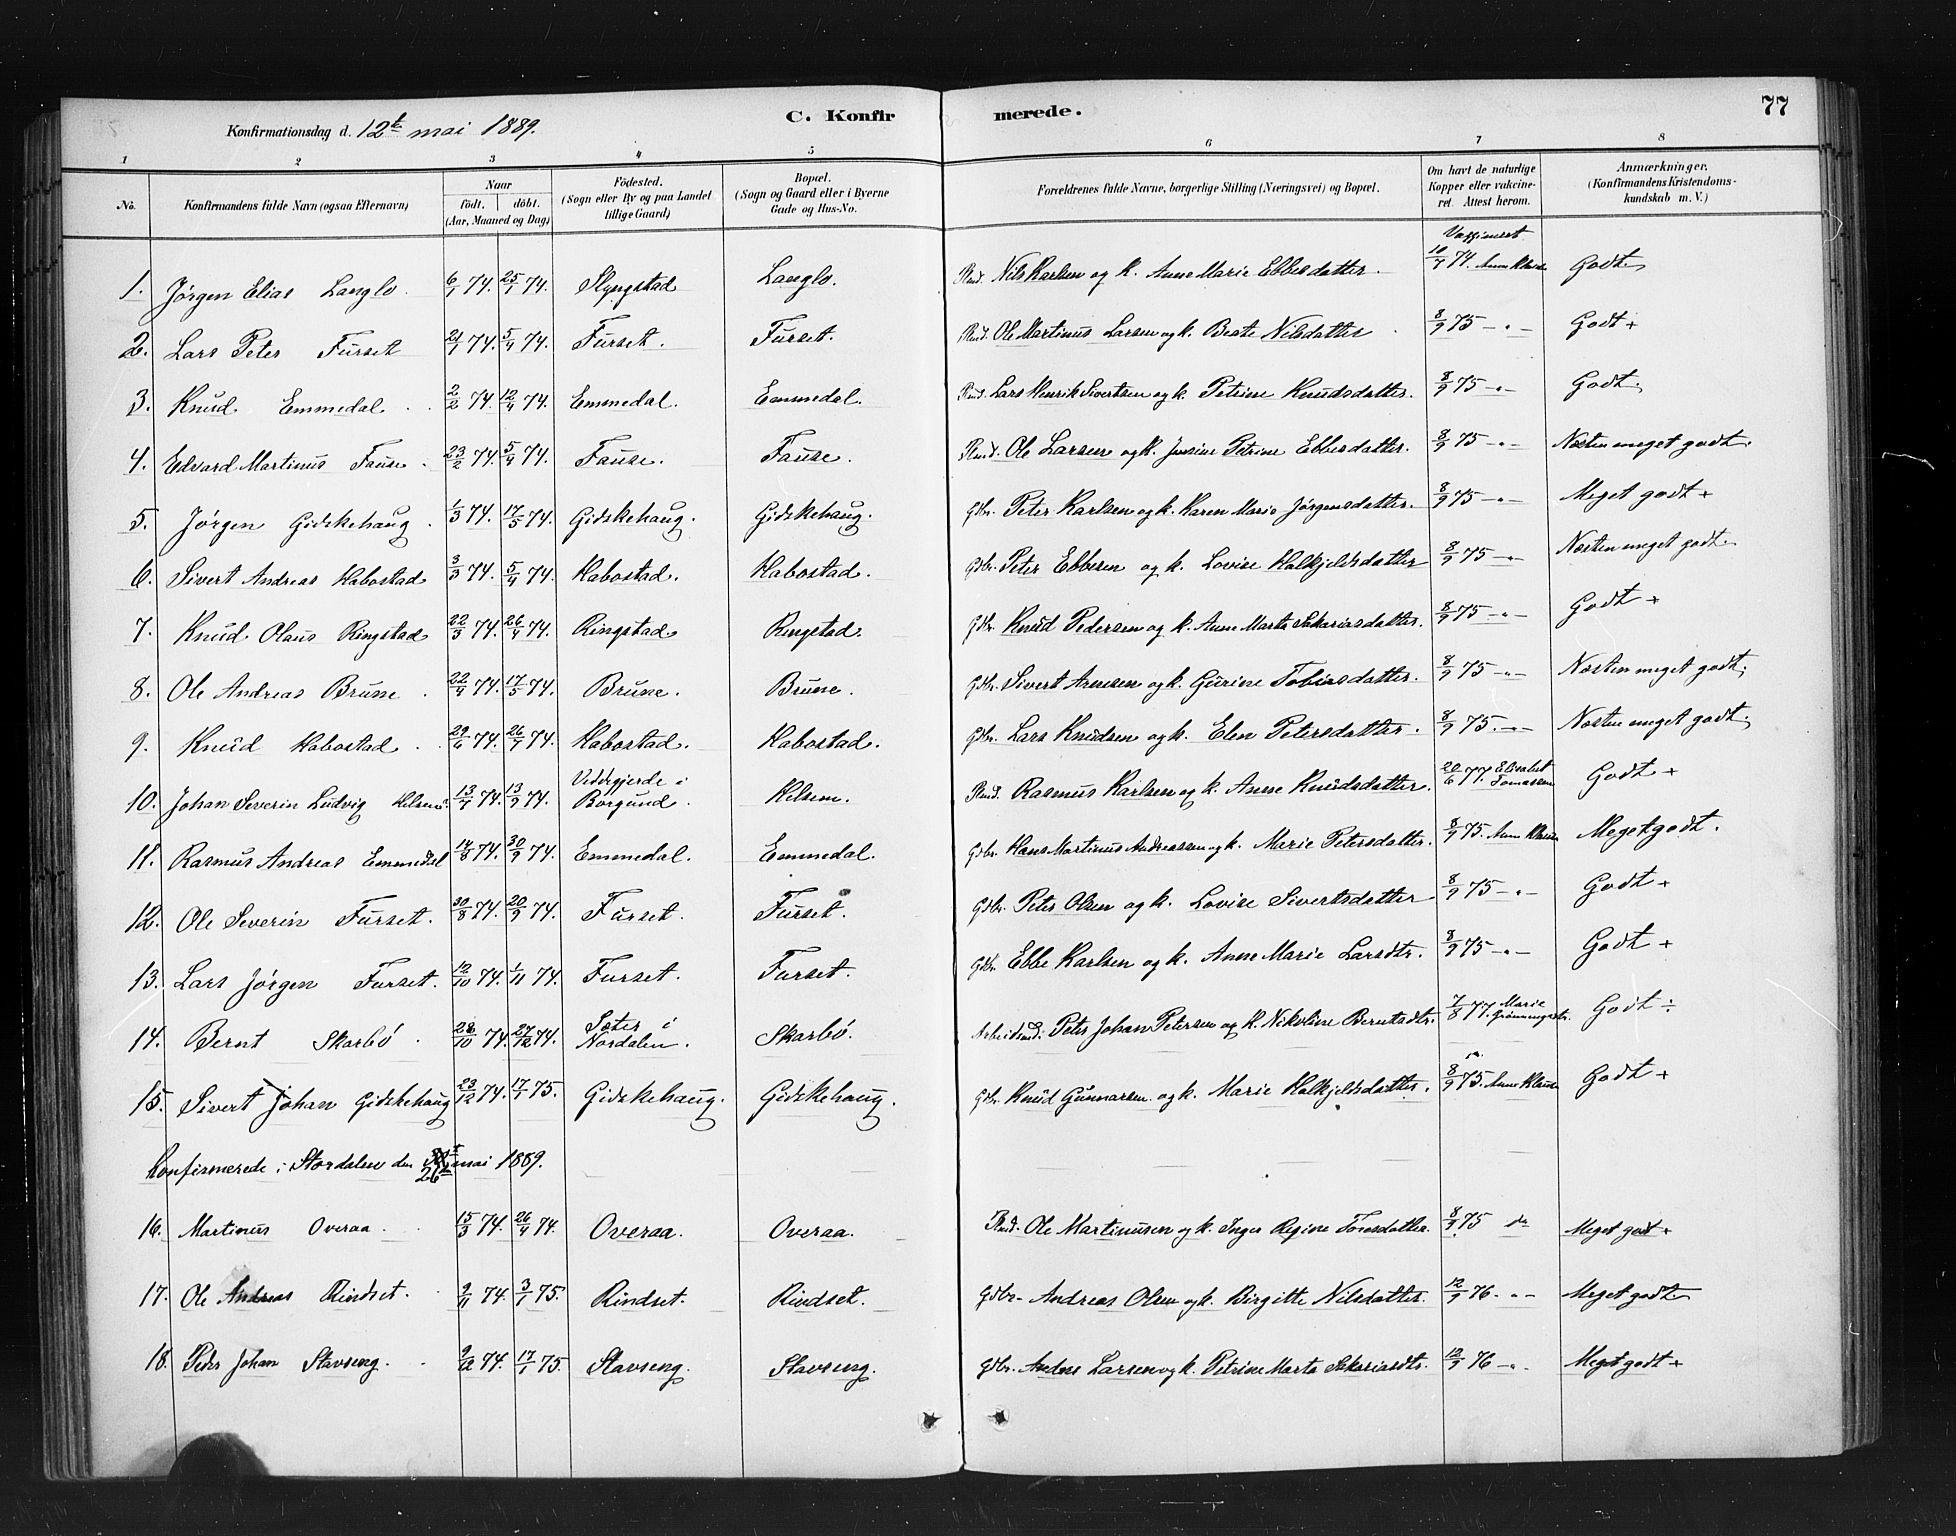 77
C. Konfirmerede.
Konfirmationsdag d. 12te mai 1889.
1 2 3 4 5 6 7 8
No. Konfirmandens fulde Navn (ogsaa Efternavn) Naar födt. döbt. (Aar, Maaned og Dag) Födested. (Sogn eller By og paa Landet tillige Gaard) Bopæl. (Sogn og Gaard eller i Byerne Gade og Hus-No. Forældrenes fulde Navne, borgerlige Stilling (Næringsvei) og Bopæl. Om havt de naturlige Kopper eller vakcineret. Attest herom. Anmærkninger. (Konfirmandens Kristendomskundskab m. V.)
1. Jørgen Elias Langlo. 6/1 74. 25/1 74. Langlo. Nils Karlsen og k. Anne Marie Ebbesdatter. 10/7 74. Godt
2. Lars Peter Furset 21/1 74. 5/4 74. Furset. Furset. Ole Martinus Larsen og k. Beate Nilsdatter 8/9 75 -"- Godt +
3. Knud Emmedal. 2/2 74. 12/4 74. Emmedal. Emmedal. Lars Henrik Sivertsen og k. Petrine Knudsdatter. 8/9 75 -"- Godt.
4. Edvard Martinus Fause. 23/2 74. 5/4 74. Fause. Fause. Ole Larsen og k. Jensine Petrine Ebbesdatter. 8/9 75 -"- Næsten meget godt.
5. Jørgen Gidskehaug. 1/3 74. 17/5 74. Gidskehaug. Gidskehaug. Gdbr. Peter Karlsen og k. Karen Marie Jørgensdatter. 8/9 75 -"- Meget godt +
6. Sivert Andreas Habostad 3/3 74. 5/4 74. Habostad. Habostad. Gdbr. Peter Ebbesen og k. Lovise Halkjeldsdatter 8/9 75 -"- Næsten meget godt.
7. Knud Olaus Ringstad 22/3 74. 26/4 74. Ringstad Ringstad. Gdbr. Knud Pedersen og k. Anne Marta Sakariasdatter. 8/9 75 -"- Godt +
8. Ole Andreas Brune. 22/4 74. 17/5 74. Brune. Brune. Gdbr. Sivert Arnesen og k. Gurine Tobiasdatter. 8/9 75 -"- Næsten meget godt.
9. Knud Habostad. 29/6 74. 26/7 74. Habostad. Habostad. Gdbr. Lars Knudsen og k. Elen Petersdatter. 8/9 75. -"- Næsten meget godt.
10. Johan Severin Ludvig Helsem. 13/7 74. 13/9 74. Veddegjerde i Borgund. Helsem. Rasmus Karlsen og k. Anne Knudsdatter. 20/6 77. Elisabet Tomassen Godt +
11. Rasmus Andreas Emmedal 14/8 74. 30/9 74. Emmedal. Emmedal. Gdbr. Hans Martinus Andreassen og k. Marie Petersdatter. 8/9 75. Meget godt.
12. Ole Severin Furset. 30/8 74. 20/9 74. Furset. Furset. Gdbr. Peter Olsen og k. Lovise Sivertsdatter 8/9 75 -"- Godt +
13. Lars Jørgen Furset. 12/10 74. 1/11 74. Furset. Furset. Gdbr. Ebbe Karlsen og k. Anne Marie Larsdtr. 8/9 75 -"- Godt +
14. Bernt Skarbö. 28/10 74. 27/12 74. Sæter i Nordalen. Skarbö. Arbeidsmd. Peter Johan Petersen og k. Nikoline Berntsdtr. 7/8 77. Marie Godt ÷
15. Sivert Johan Gidskehaug 23/12 74. 17/1 75. Gidskehaug. Gidskehaug. Gdbr. Knud Gunnarsen og k. Marie Halkjeldsdatter. 8/9 75. Godt +
Konfirmerede i Stordalen den 26 mai 1889.
16. Martinus Overaa. 15/3 74. 26/4 74. Overaa. Overaa. Ole Martinusen og k. Inger Regine 8/9 75 do Meget godt +
17. Ole Andreas Rindset. 9/11 74. 3/1 75. Rindset. Rindset. Gdbr. Andreas Olsen og k. Birgitte Nilsdatter. 12/9 76 -"- Meget godt
18. Peder Johan Stavseng. 9/12 74. 17/1 75. Stavseng. Stavseng. Gdbr. Anders Larsen og k. Petrine Marta Sakariasdtr. 12/9 76 -"- Meget godt +